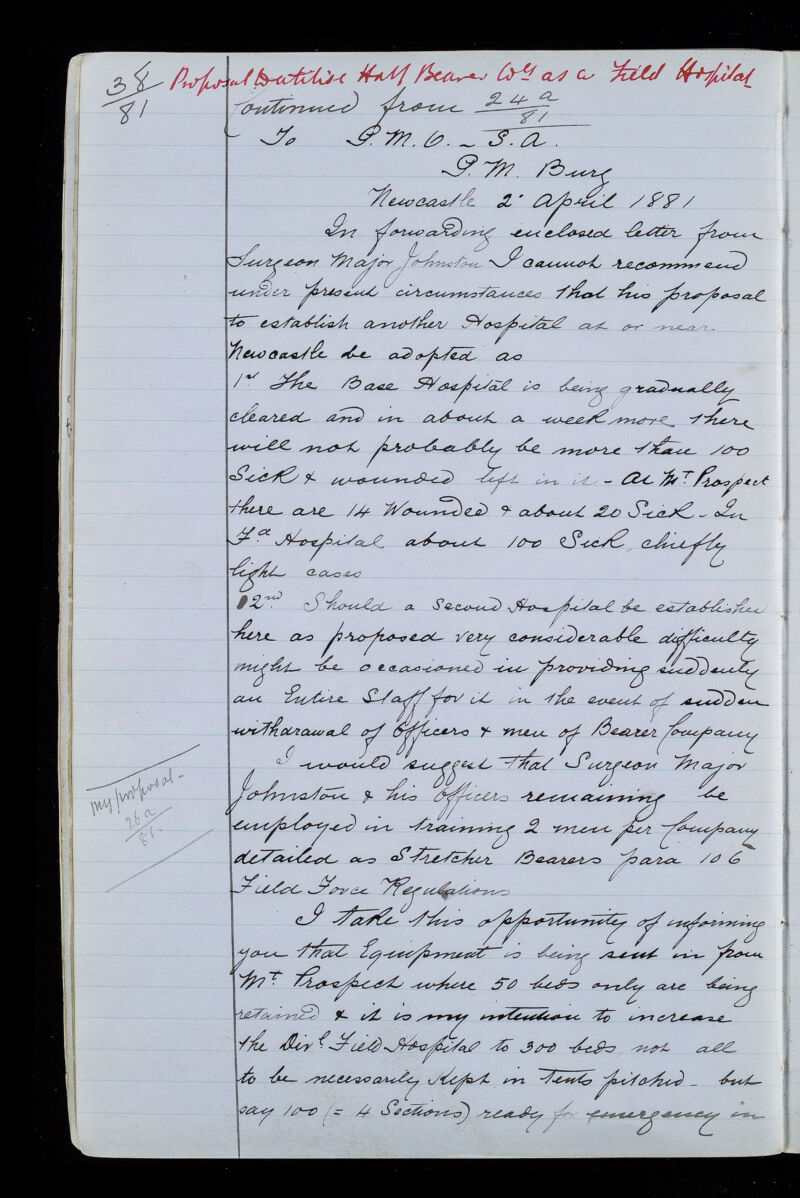 38/81 Proposal to utilise Half Bearer Coy as a Field Hospital
Continued from 24a/81
To P.M.O. - S.A.
P.M. Burg
Newcastle 2 April 1881
In forwarding enclosed letter from
Surgeon Major Johnston I cannot recommend
under present circumstances that his proposal
to establish another Hospital at or near
Newcastle be adopted as
1st The Base Hospital is being gradually
cleared and in about a week more there
will not probably be more than 100
Sick & wounded left in it - At Mt. Prospect
there are 14 Wounded & about 20 Sick - In
Fd Hospital about 100 Sick, chiefly
light cases
2nd. Should a second Hospital be established
here as proposed very considerable difficulty
might be occasioned in providing suddenly
an Entire Staff for it in the event of sudden
withdrawal of Officers & men of Bearer Company
I would suggest that Surgeon Major
Johnston & his officers remaining be
employed in training 2 men per Company
detailed as Stretcher Bearers para 106
Field Force Regulations
my proposal -
26a/81.
I take this opportunity of informing
you that Equipment is being sent in from
Mt. Prospect where 50 beds only are being
retained & it is my intention to increase
the Divl. Field Hospital to 300 beds, not all
to be necessarily kept in tents pitched - but
say 100 (= 4 Sections) ready for emergency in